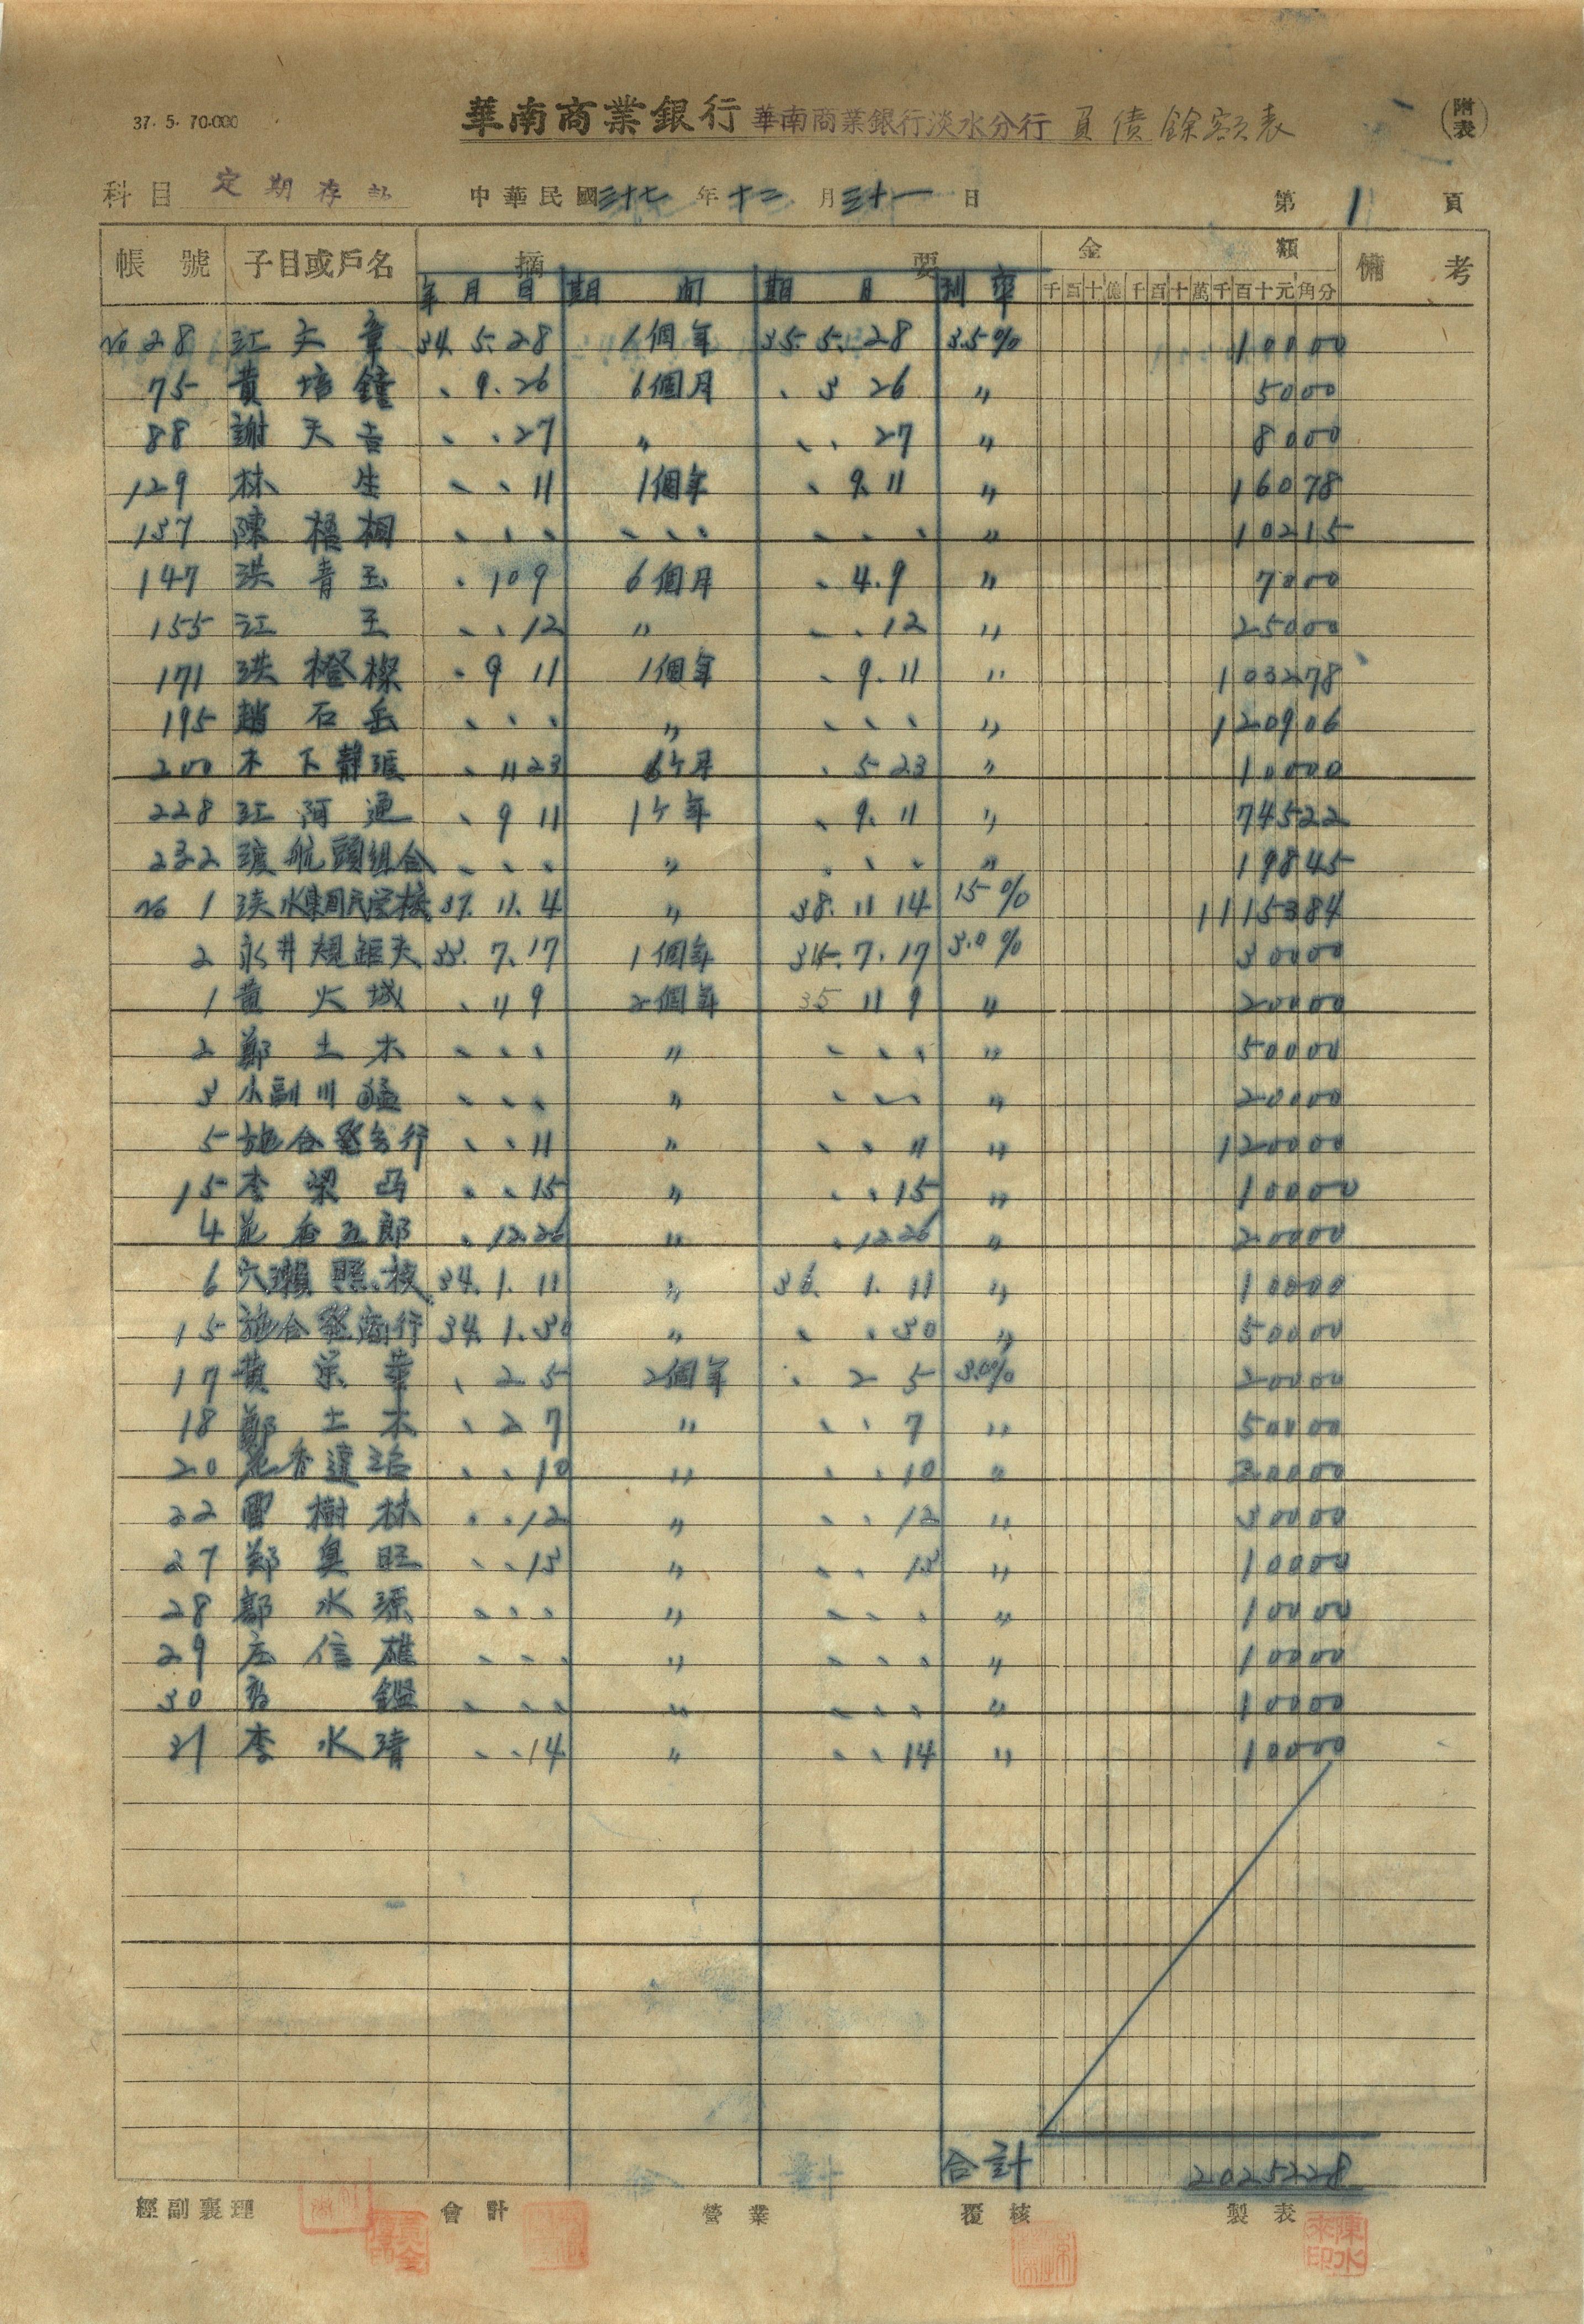 37. 5. 70.000
華南商業銀行 華南商業銀行淡水分行 負債餘額表 (附表)
科目 定期存款 中華民國三十七年十二月三十一日 第1頁
帳號 子目或戶名 摘要 金額 備考
年月日 期間 期日 利率 千百十億千百十萬千百十元角分
No 28 江文章 34. 5. 28 1個年 35. 5. 28 3.5% 10000
75 黃培鐘 、 9. 26 6個月 、 3 26 〃 5000
88 謝天吉 、 、 27 〃 、 、 27 〃 8000
129 林生 、 、 11 1個年 、 9. 11 〃 16078
137 陳梧桐 、 、 、 、 、 、 、 、 、 〃 10215
147 洪青玉 、 10 9 6個月 、 4. 9 〃 7000
155 江玉 、 、 12 〃 、 、 12 〃 25000
171 洪橙樑 、 9 11 1個年 、 9. 11 〃 103278
195 趙石岳 、 、 、 〃 、 、 、 〃 120906
200 木下静 、 11 23 6ケ月 、 5 23 〃 10000
228 江阿通 、 9 11 1ケ年 、 9. 11 〃 74522
232 渡航頭組合 、 、 、 〃 、 、 、 〃 19845
No 1 淡水東國民学校 37. 11. 4 〃 38. 11 14 15% 1115384
2 永井規矩夫 33. 7. 17 1個年 34. 7. 17 3.0% 30000
1 黃火城 、 11 9 2個年 35 11 9 〃 20000
2 鄭土木 、 、 、 〃 、 、 、 〃 50000
3 小副川猛 、 、 、 〃 、 、 、 〃 20000
5 施合發商行 、 、 11 〃 、 、 11 〃 120000
15 李梁 、 、 15 〃 、 、 15 〃 10000
4 花香五郎 、 12. 26 〃 、 12 26 〃 20000
6 穴瀨照枝 34. 1. 11 〃 36. 1. 11 〃 10000
15 施合發商行 34. 1. 30 〃 、 、 30 〃 50000
17 黃榮華 、 2 5 2個年 、 2 5 3.0% 20000
18 鄭土木 、 2 7 〃 、 、 7 〃 50000
20 花香達治 、 、 10 〃 、 、 10 〃 20000
22 雷樹林 、 、 12 〃 、 、 12 〃 30000
27 鄭臭旺 、 、 13 〃 、 、 13 〃 10000
28 鄭水源 、 、 、 〃 、 、 、 〃 10000
29 庄信雄 、 、 、 〃 、 、 、 〃 10000
30 鑑 、 、 、 〃 、 、 、 〃 10000
31 李水清 、 、 14 〃 、 、 14 〃 10000
合計 2025228
經副襄理 會計 營業 覆核 製表
陳水來印